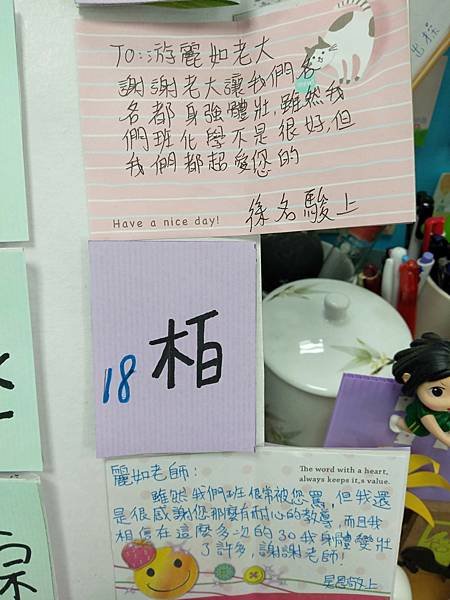 出探
TO:游麗如老大
謝謝老大讓我們各
各都身強體壯,雖然我
們班化學不是很好,但
我們都超愛您的
Have a nice day!
徐名駿上
18 柏
麗如老師:
The word with a heart,
always keeps it,s value.
雖然我們班很常被您罵,但我還
是很感謝您那麼有耐心的教導,而且我
相信在這麼多次的30我身體變壯
了許多,謝謝老師!
敬上
宗